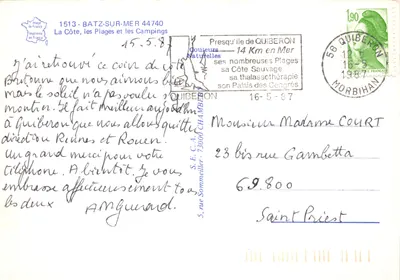 1513 - BATZ-SUR-MER 44740
La Côte, les Plages et les Campings
15.5.87
J'ai retrouvé ce coin de côte
Bretonne que nous aimons bien
mais le soleil n'a pas voulu se
montrer. Il fait meilleur aujourd'hui
à Quiberon que nous allons quitter
direction Rennes et Rouen.
Un grand merci pour votre
téléphone. A bientôt. Je vous
embrasse affectueusement tous
les deux
Couleurs
Naturelles
5, rue Sommeiller - 73000 CHAMBÉRY
Presqu'île de QUIBERON
14 Km en Mer
ses nombreuses Plages
sa Côte Sauvage
sa thalassothérapie
son Palais des Congrès
QUIBERON 16-5-87
56 QUIBERON
1987
MORBIHAN
1,90
Monsieur Madame COURT
23 bis rue Gambetta
69.800
Saint Priest